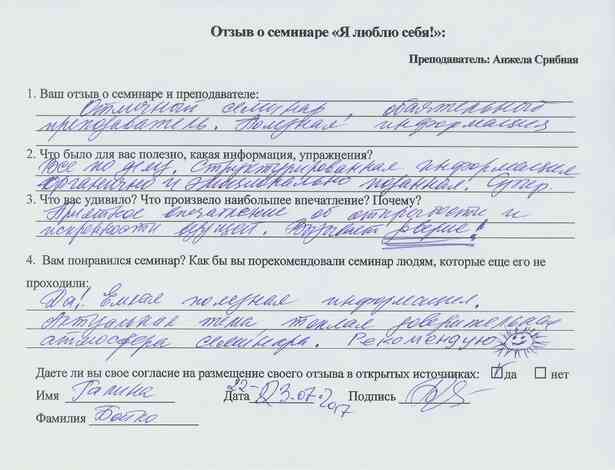 Отзыв о семинаре «Я люблю себя!»:
Преподаватель: Анжела Срибная
1. Ваш отзыв о семинаре и преподавателе:
Отличной семинар, обаятельной
преподаватель. Полезная информация
2. Что было для вас полезно, какая информация, упражнения?
Все по делу. Структурированная информация
органично и эмоционально поданная. Супер
3. Что вас удивило? Что произвело наибольшее впечатление? Почему?
Приятное впечатление об открытости и
искренности ведущей. Вызывает доверие!
4. Вам понравился семинар? Как бы вы порекомендовали семинар людям, которые еще его не
проходили:
Да! Емкая полезная информация.
Актуальная тема теплая доверительная
атмосфера семинара. Рекомендую
Даете ли вы свое согласие на размещение своего отзыва в открытых источниках: да нет
Имя Галина Дата 22-23-07-2017 Подпись
Фамилия Бойко